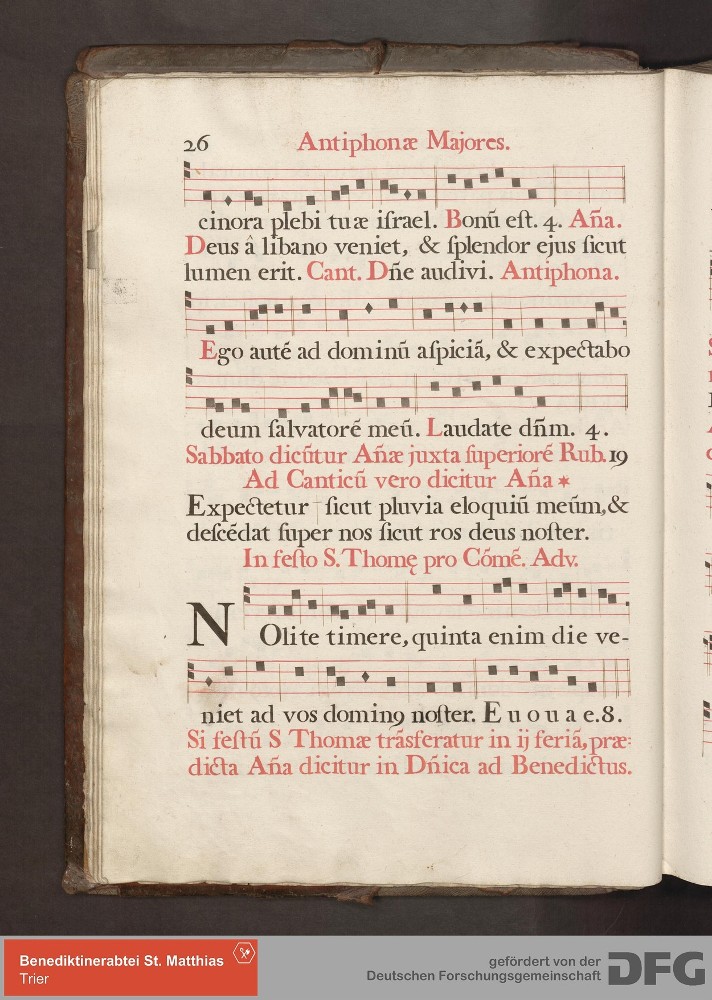 26 Antiphonæ Majores.
cinora plebi tuæ iſrael. Bonū eſt. 4. Añа.
Deus â libano veniet, & ſplendor ejus ſicut
lumen erit. Cant. Dñe audivi. Antiphona.
Ego auté ad dominū aſpiciā, & expectabo
deum ſalvatoré meū. Laudate dñm. 4.
Sabbato dicūtur Añæ juxta ſuperioré Rub. 19
Ad Canticū vero dicitur Aña *
Expectetur † ſicut pluvia eloquiū meūm, &
deſcédat ſuper nos ſicut ros deus noſter.
In feſto S. Thomę pro Cómé. Adv.
NOlite timere, quinta enim die ve-
niet ad vos domin9 noſter. E u o u a e. 8.
Si feſtū S Thomæ trãsferatur in ij feriã, præ:
dicta Aña dicitur in Dñica ad Benedictus.
Benediktinerabtei St. Matthias
Trier
gefördert von der
Deutschen Forschungsgemeinschaft
DFG